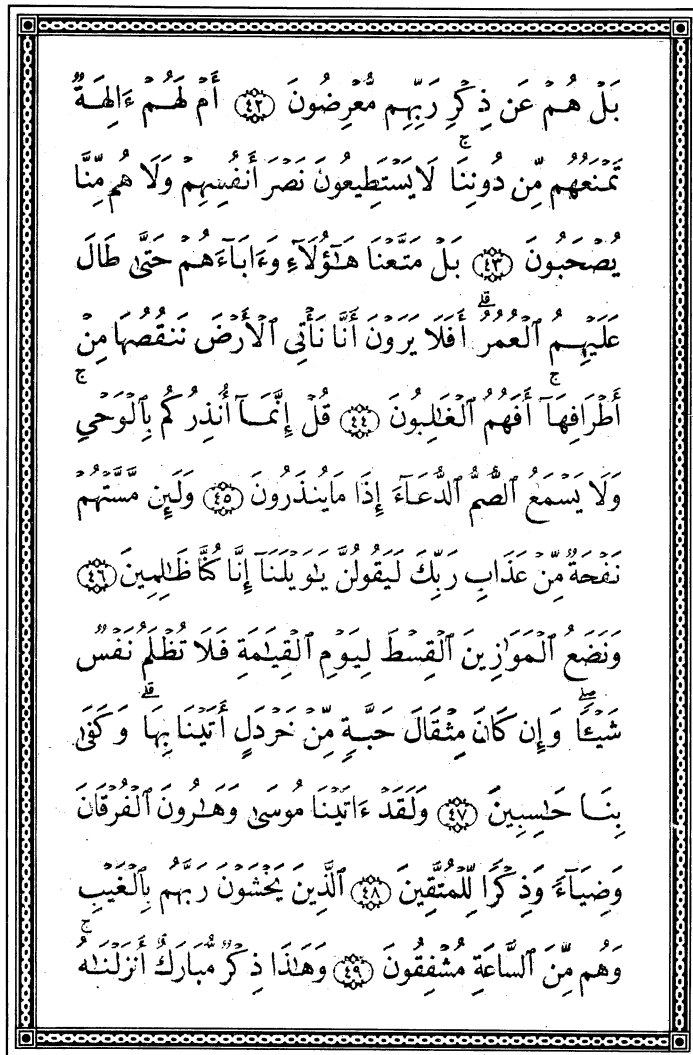 بَلْ هُمْ عَن ذِكْرِ رَبِّهِم مُّعْرِضُونَ ٤٢ أَمْ لَهُمْ ءَالِهَةٌ
تَمْنَعُهُم مِّن دُونِنَا ۚ لَا يَسْتَطِيعُونَ نَصْرَ أَنفُسِهِمْ وَلَا هُم مِّنَّا
يُصْحَبُونَ ٤٣ بَلْ مَتَّعْنَا هَٰٓؤُلَآءِ وَءَابَآءَهُمْ حَتَّىٰ طَالَ
عَلَيْهِمُ ٱلْعُمُرُ ۗ أَفَلَا يَرَوْنَ أَنَّا نَأْتِى ٱلْأَرْضَ نَنقُصُهَا مِنْ
أَطْرَافِهَآ ۚ أَفَهُمُ ٱلْغَٰلِبُونَ ٤٤ قُلْ إِنَّمَآ أُنذِرُكُم بِٱلْوَحْىِ ۚ
وَلَا يَسْمَعُ ٱلصُّمُّ ٱلدُّعَآءَ إِذَا مَا يُنذَرُونَ ٤٥ وَلَئِن مَّسَّتْهُمْ
نَفْحَةٌ مِّنْ عَذَابِ رَبِّكَ لَيَقُولُنَّ يَٰوَيْلَنَآ إِنَّا كُنَّا ظَٰلِمِينَ ٤٦
وَنَضَعُ ٱلْمَوَٰزِينَ ٱلْقِسْطَ لِيَوْمِ ٱلْقِيَٰمَةِ فَلَا تُظْلَمُ نَفْسٌ
شَيْـًٔا ۖ وَإِن كَانَ مِثْقَالَ حَبَّةٍ مِّنْ خَرْدَلٍ أَتَيْنَا بِهَا ۗ وَكَفَىٰ
بِنَا حَٰسِبِينَ ٤٧ وَلَقَدْ ءَاتَيْنَا مُوسَىٰ وَهَٰرُونَ ٱلْفُرْقَانَ
وَضِيَآءً وَذِكْرًا لِّلْمُتَّقِينَ ٤٨ ٱلَّذِينَ يَخْشَوْنَ رَبَّهُم بِٱلْغَيْبِ
وَهُم مِّنَ ٱلسَّاعَةِ مُشْفِقُونَ ٤٩ وَهَٰذَا ذِكْرٌ مُّبَارَكٌ أَنزَلْنَٰهُ ۚ